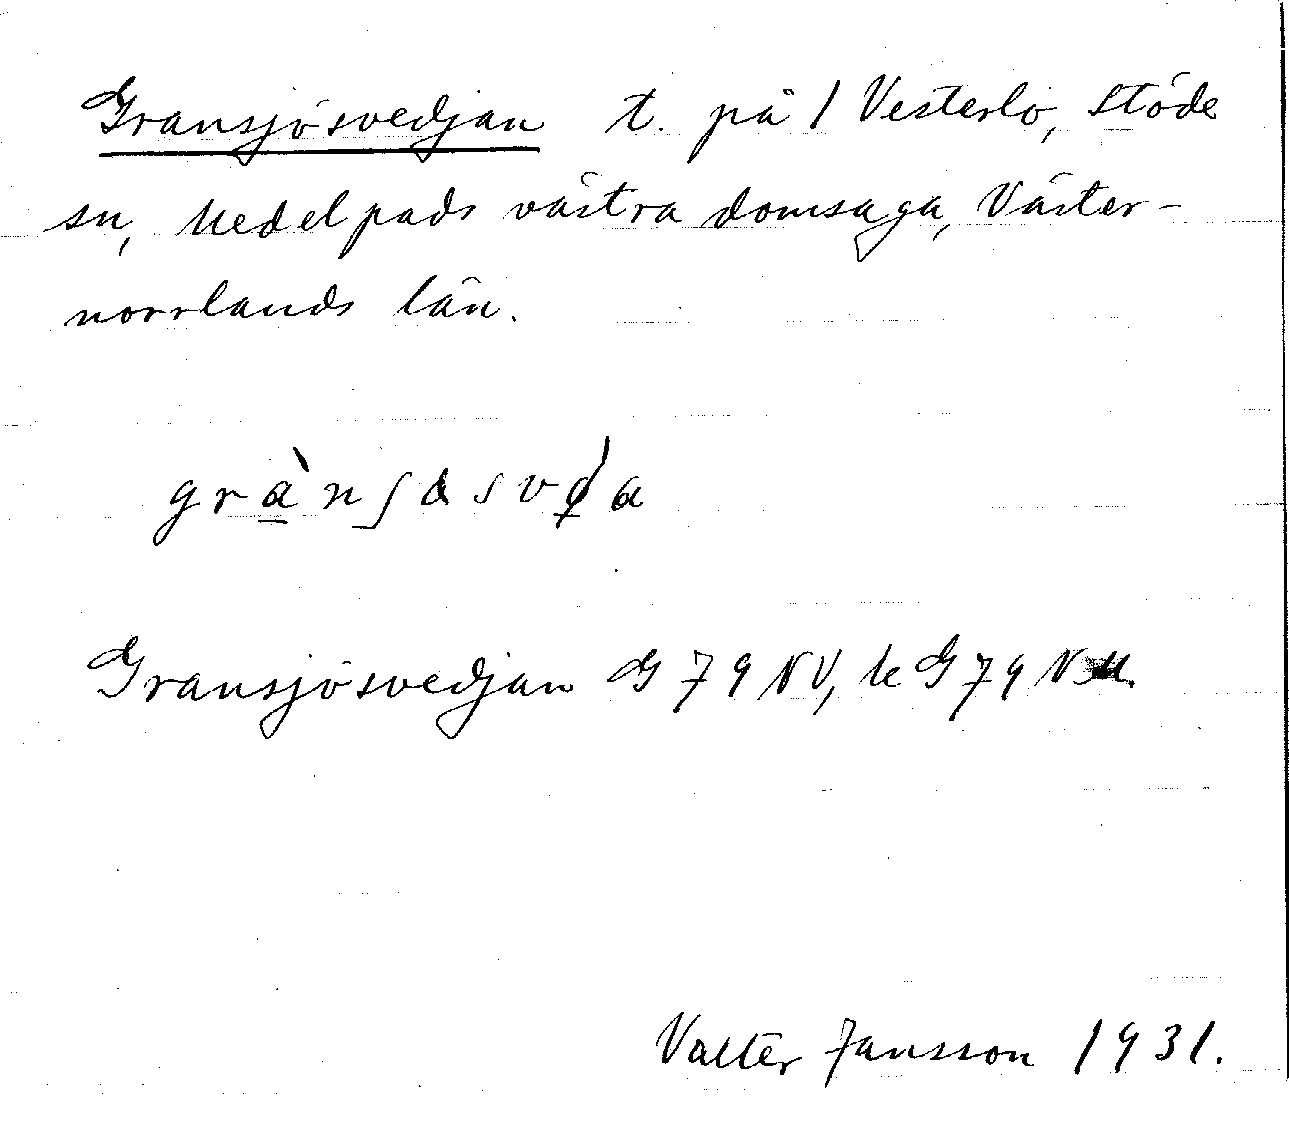 Gransjösvedjan t. på 1 Vesterlo, Stöde
sn, Medelpads västra domsaga, Väster-
norrlands län.
Gransjösvedjan G 79 NV, k G 79 N
Valter Jansson 1931.